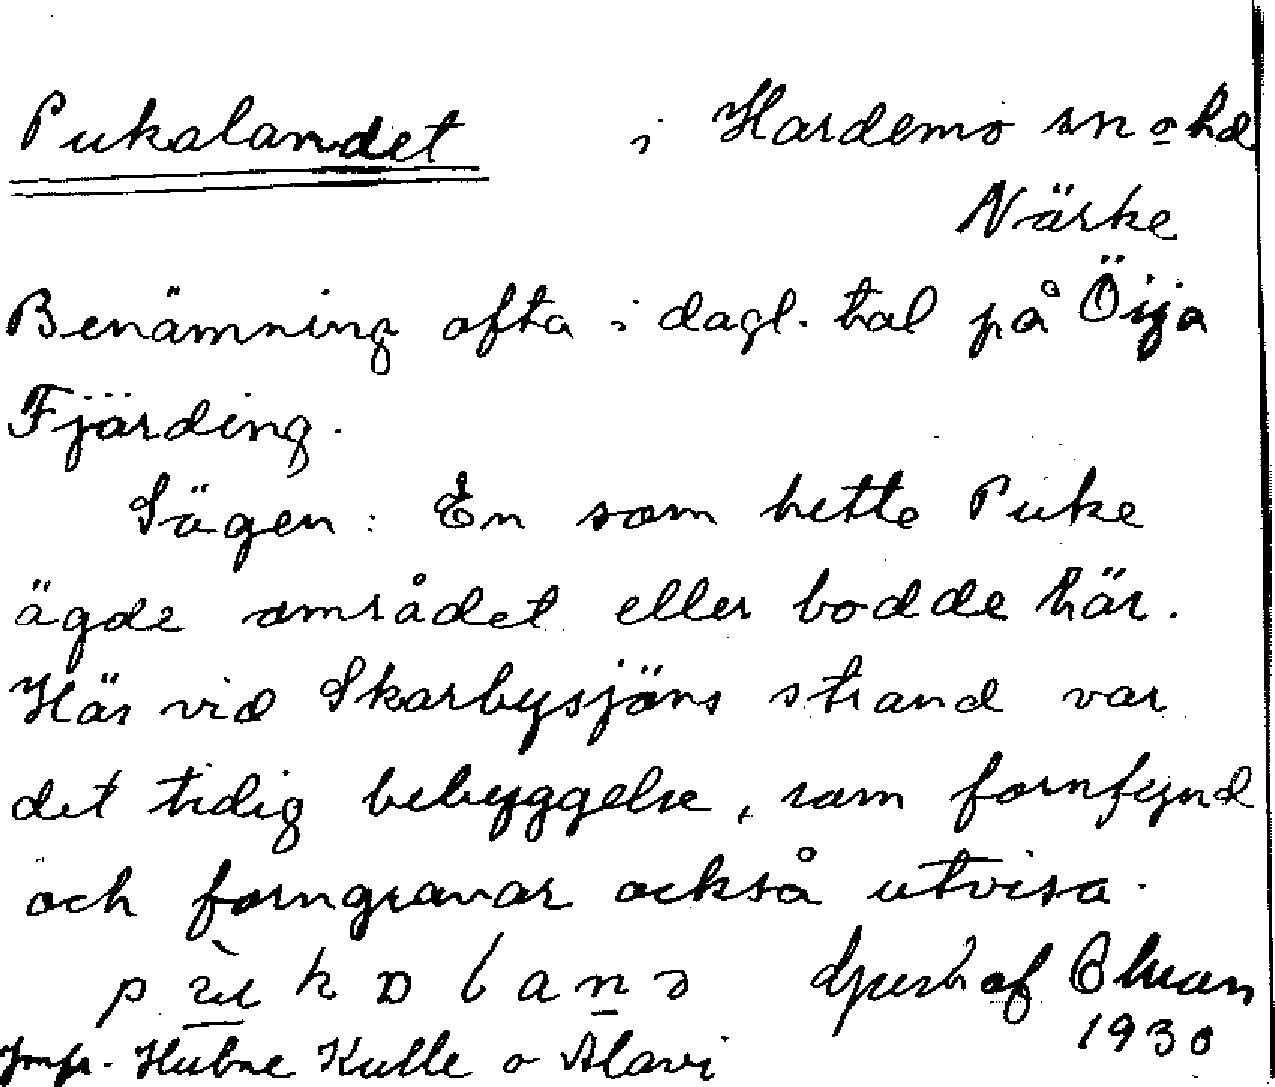 Pukalandet i Hardemo sn o hd
Närke
Benämning ofta i dagl. tal på Öija
Fjärding.
Sägen: En som hette Puke
ägde området eller bodde här.
Här vid Skarbysjöns strand var
det tidig bebyggelse, som fornfynd
och forngravar också utvisa.
Gustaf Ohman
1930
Kulle o